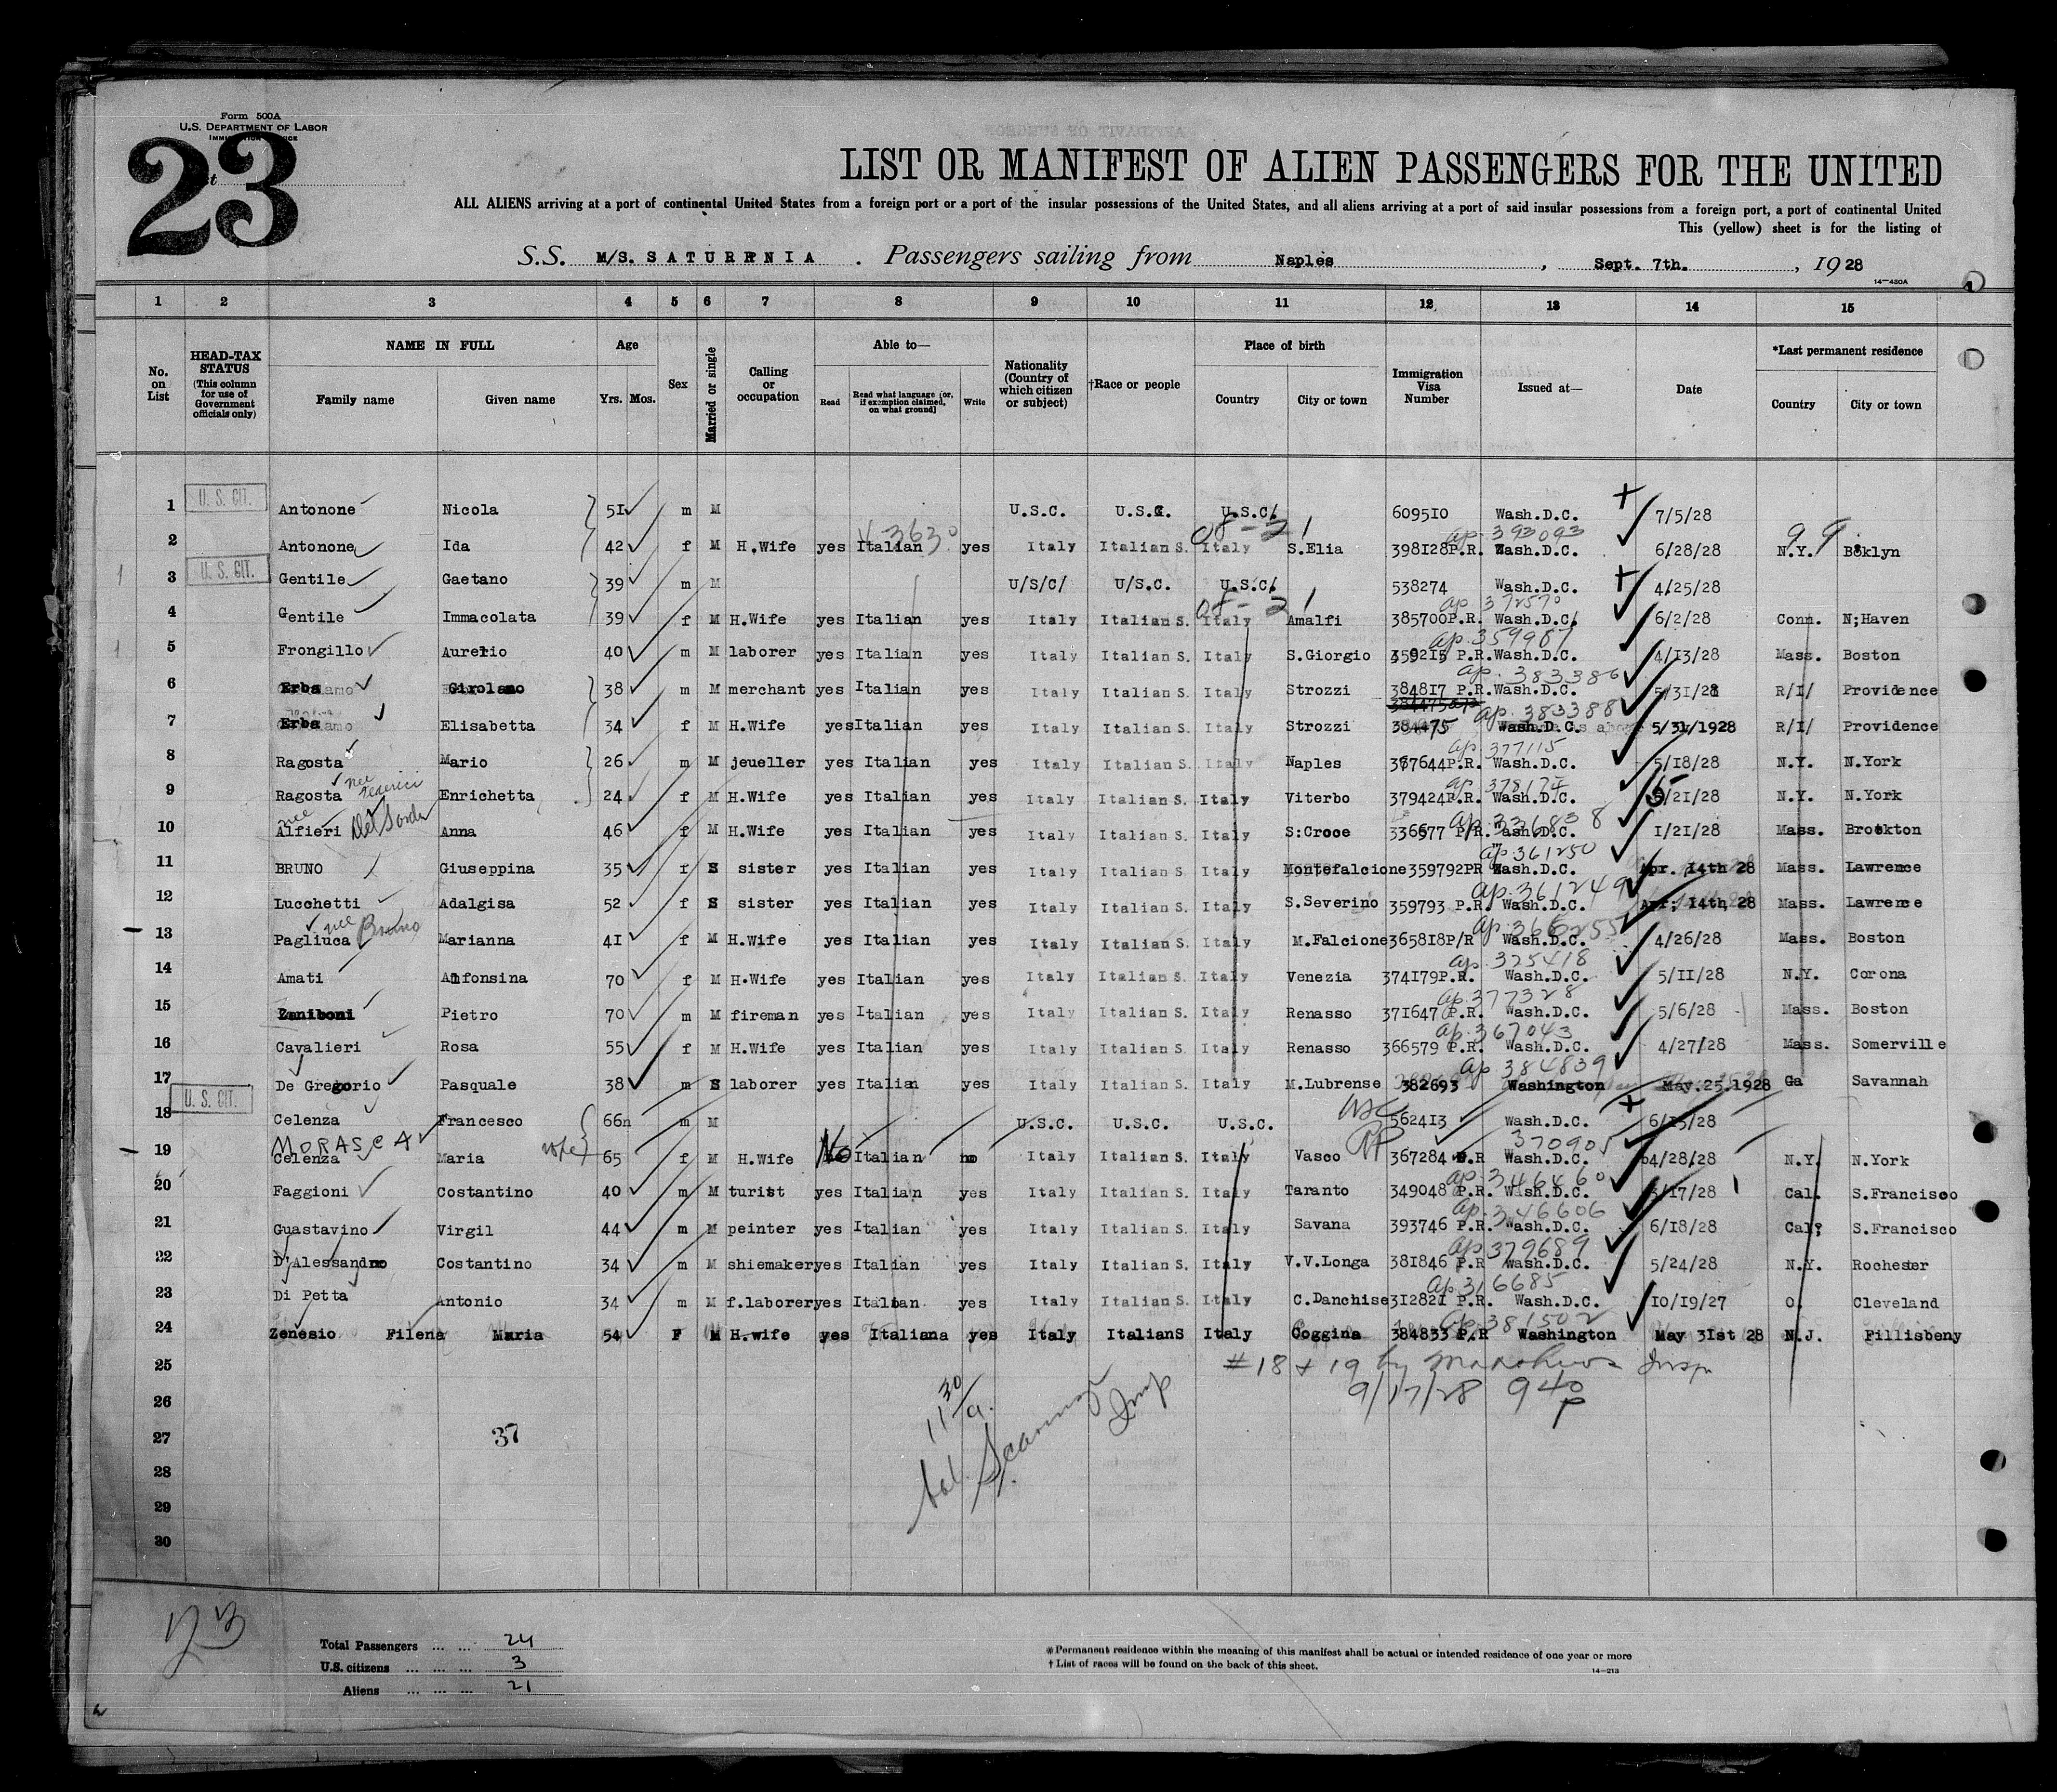 Form 500A
U.S. DEPARTMENT OF LABOR
23
LIST OR MANIFEST OF ALIEN PASSENGERS FOR THE UNITED
ALL ALIENS arriving at a port of continental United States from a foreign port or a port of the insular possessions of the United States, and all aliens arriving at a port of said insular possessions from a foreign port, a port of continental United
This (yellow) sheet is for the listing of
S.S. M/S. SATURRNIA . Passengers sailing from Naples , Sept. 7th. , 1928
14—430A
1 2 3 4 5 6 7 8 9 10 11 12 13 14 15
No. on List
HEAD-TAX STATUS (This column for use of Government officials only)
NAME IN FULL Family name Given name
Age Yrs. Mos.
Sex
Married or single
Calling or occupation
Able to— Read Read what language [or, if exemption claimed, on what ground] Write
Nationality (Country of which citizen or subject)
†Race or people
Place of birth Country City or town
Immigration Visa Number
Issued at—
Date
*Last permanent residence Country City or town
1 U. S. CIT. Antonone Nicola 51 m M U.S.C. U.S.C. U.S.C/ 609510 Wash.D.C. 7/5/28
4-3630 08-21 ap 393093 99
2 Antonone Ida 42 f M H.Wife yes Italian yes Italy Italian S. Italy S.Elia 398128P.R. Wash.D.C. 6/28/28 N.Y. Bklyn
3 U. S. CIT. Gentile Gaetano 39 m M U/S/C/ U/S.C. U.S.C/ 538274 Wash.D.C. 4/25/28
08-21 ap 372570
4 Gentile Immacolata 39 f M H.Wife yes Italian yes Italy Italian S. Italy Amalfi 385700P.R. Wash.D.C. 6/2/28 Conn. N;Haven
ap 359987
5 Frongillo Aurelio 40 m M laborer yes Italian yes Italy Italian S. Italy S.Giorgio 359215 P.R. Wash.D.C. 4/13/28 Mass. Boston
ap. 383386
6 Erba Girolamo 38 m M merchant yes Italian yes Italy Italian S. Italy Strozzi 384817 P.R. Wash.D.C. 5/31/28 R/I/ Providence
ap. 383388
7 Erba Elisabetta 34 f M H.Wife yes Italian yes Italy Italian S. Italy Strozzi 384475 Wash.D.C. 5/31/1928 R/I/ Providence
ap. 377115
8 Ragosta Mario 26 m M jeueller yes Italian yes Italy Italian S. Italy Naples 377644P.R. Wash.D.C. 5/18/28 N.Y. N.York
nee Federici ap 378174
9 Ragosta Enrichetta 24 f M H.Wife yes Italian yes Italy Italian S. Italy Viterbo 379424P.R. Wash.D.C. 5/21/28 N.Y. N.York
nee Del Sordo ap. 336838
10 Alfieri Anna 46 f M H.Wife yes Italian yes Italy Italian S. Italy S:Croce 336577 P/R. Wash.D.C. 1/21/28 Mass. Brockton
ap. 361250
11 BRUNO Giuseppina 35 f S sister yes Italian yes Italy Italian S. Italy Montefalcione 359792PR Wash.D.C. Apr. 14th 28 Mass. Lawrence
ap. 361249
12 Lucchetti Adalgisa 52 f S sister yes Italian yes Italy Italian S. Italy S.Severino 359793 P.R. Wash.D.C. Apr; 14th, 28 Mass. Lawrence
nee Bruno ap. 366255
13 Pagliuca Marianna 41 f M H.Wife yes Italian yes Italy Italian S. Italy M.Falcione 365818P/R Wash.D.C. 4/26/28 Mass. Boston
ap. 375418
14 Amati Alfonsina 70 f M H.Wife yes Italian yes Italy Italian S. Italy Venezia 374179P.R. Wash.D.C. 5/11/28 N.Y. Corona
ap. 377328
15 Zaniboni Pietro 70 m M fireman yes Italian yes Italy Italian S. Italy Renasso 371647 P.R. Wash.D.C. 5/6/28 Mass. Boston
ap. 367043
16 Cavalieri Rosa 55 f M H.Wife yes Italian yes Italy Italian S. Italy Renasso 366579 P.R. Wash.D.C. 4/27/28 Mass. Somerville
ap 384839
17 De Gregorio Pasquale 38 m S laborer yes Italian yes Italy Italian S. Italy M.Lubrense 382693 Washington May.25.1928 Ga Savannah
18 U. S. CIT. Celenza Francesco 66 m M U.S.C. U.S.C. U.S.C. 562413 Wash.D.C. 6/15/28
MORASCA wife 370905
19 Celenza Maria 65 f M H.Wife No Italian no Italy Italian S. Italy Vasco 367284 P.R Wash.D.C. 4/28/28 N.Y. N.York
ap. 346460
20 Faggioni Costantino 40 m M turist yes Italian yes Italy Italian S. Italy Taranto 349048 P.R. Wash.D.C. 3/17/28 Cal. S.Francisco
ap. 346606
21 Guastavino Virgil 44 m M peinter yes Italian yes Italy Italian S. Italy Savana 393746 P.R. Wash.D.C. 6/18/28 Cal; S.Francisco
ap 379689
22 D'Alessandro Costantino 34 m M shiemaker yes Italian yes Italy Italian S. Italy V.V.Longa 381846 P.R Wash.D.C. 5/24/28 N.Y. Rochester
ap. 316685
23 Di Petta Antonio 34 m M f.laborer yes Italian yes Italy Italian S. Italy C.Danchise 312821 P.R. Wash.D.C. 10/19/27 O. Cleveland
ap 381502
24 Zenesio Filena Maria 54 F M H.wife yes Italiana yes Italy ItalianS Italy Coggina 384833 P.R Washington May 31st 28 N.J. Fillisbeny
25 #18 + 19 by Insp
26 9/17/28 940 p
11 30/a.
27 37
Insp
28
29
30
23
Total Passengers ... ... 24
U.S. citizens ... ... ... 3
Aliens ... ... ... 21
*Permanent residence within the meaning of this manifest shall be actual or intended residence of one year or more
†List of races will be found on the back of this sheet.
14—213